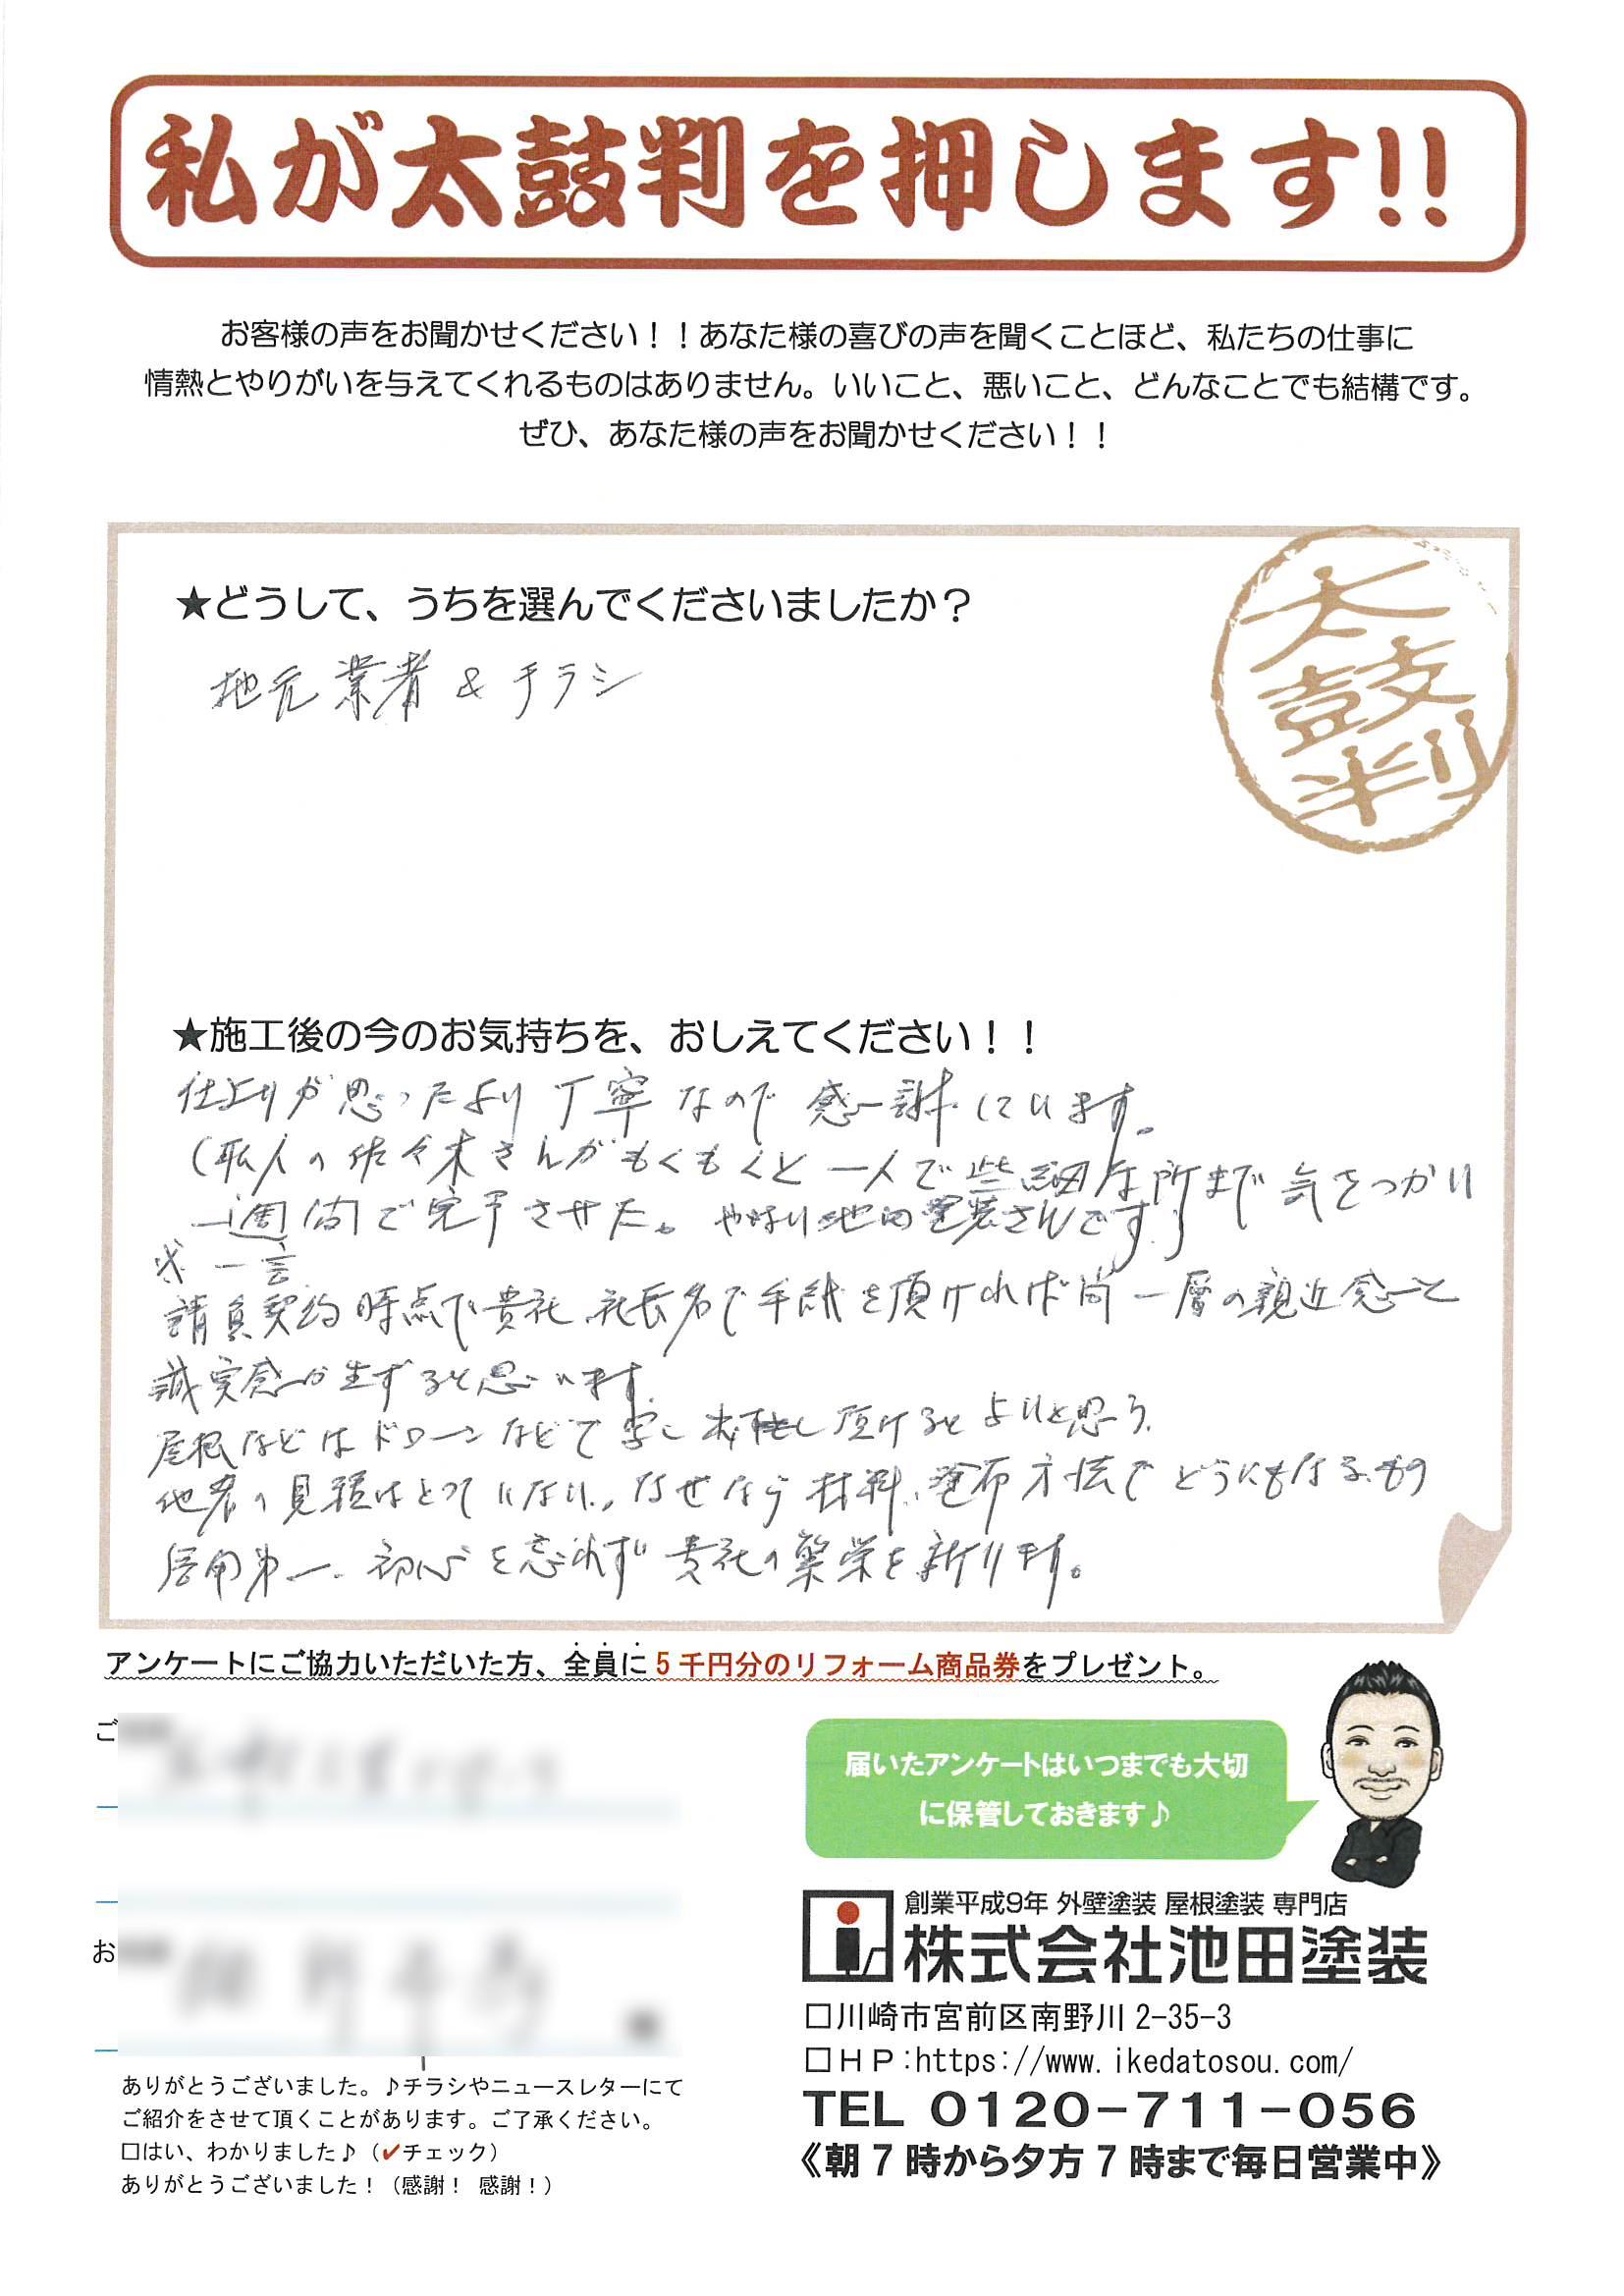 私が太鼓判を押します!!
お客様の声をお聞かせください！！あなた様の喜びの声を聞くことほど、私たちの仕事に
情熱とやりがいを与えてくれるものはありません。いいこと、悪いこと、どんなことでも結構です。
ぜひ、あなた様の声をお聞かせください！！
太鼓判
★どうして、うちを選んでくださいましたか？
地元業者＆チラシ
★施工後の今のお気持ちを、おしえてください！！
仕上りが思ったより丁寧なので感謝しています。
(職人の佐々木さんがもくもくと一人で些細な所まで気をつかい
一週間で完了させた。やはり池田塗装さんです。)
※一言
請負契約時点で貴社社長名で手紙を頂ければ尚一層の親近感と
誠実感が生ずると思います。
屋根などはドローンなどで写し お 頂けるとよいと思う。
他者の見積はとっていない。なぜなら材料、塗布方法でどうにもなるもの
信用第一、初心を忘れず貴社の繁栄を祈ります。
アンケートにご協力いただいた方、全員に5千円分のリフォーム商品券をプレゼント。
ご
届いたアンケートはいつまでも大切
に保管しておきます♪
お
創業平成9年 外壁塗装 屋根塗装 専門店
株式会社池田塗装
□川崎市宮前区南野川2-35-3
□ＨＰ:https://www.ikedatosou.com/
TEL 0120-711-056
《朝7時から夕方7時まで毎日営業中》
ありがとうございました。♪チラシやニュースレターにて
ご紹介をさせて頂くことがあります。ご了承ください。
□はい、わかりました♪（✔チェック）
ありがとうございました！（感謝！ 感謝！）